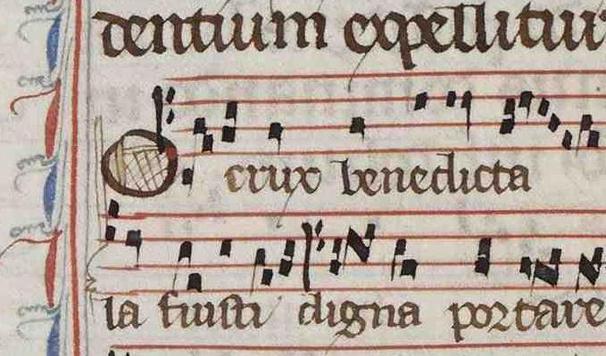 dentium expellitur
O crux benedicta
la fuisti digna portare